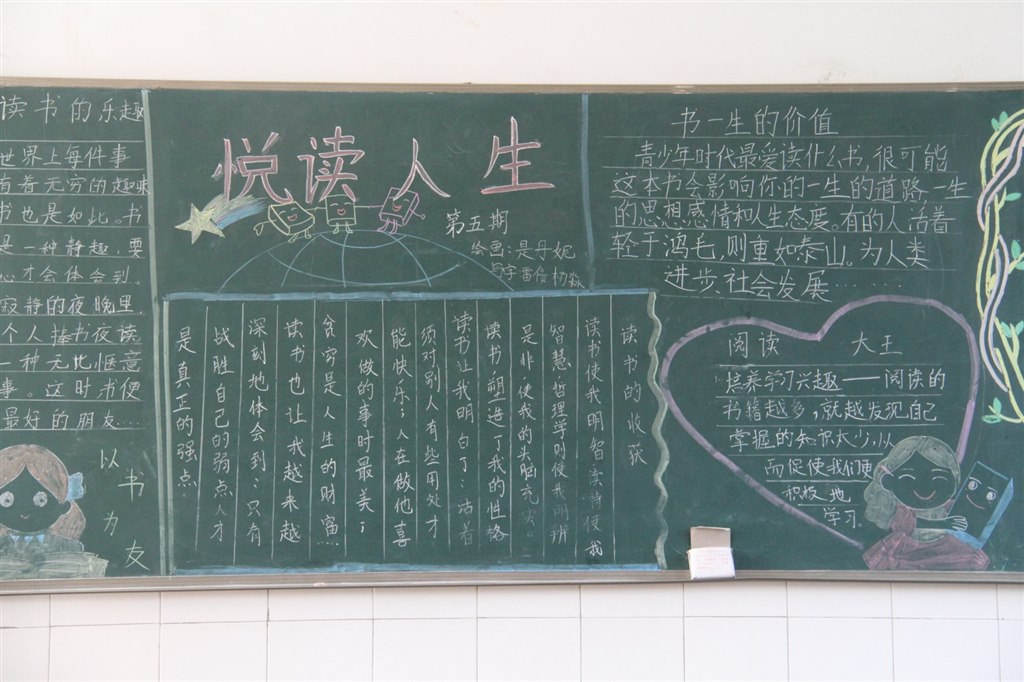 读书的乐趣
世界上每件事
有着无穷的趣味
书也是如此。书
是一种静趣,要
心才会体会到。
寂静的夜晚里,
个人捧书夜读
一种无比惬意
事。这时书便
最好的朋友…
以书为友
悦读人生
第五期
绘画:是丹妮
写字:雷倍 杨淼
读书的收获
读书使我明智:读诗使我
智慧,哲理学则使我明辨
是非,使我的头脑充实。
读书,塑造了我的性格
读书让我明白了:活着
须对别人有些用处才
能快乐;人在做他喜
欢做的事时最美;
贪穷是人生的财富…
读书也让我越来越
深刻地体会到:只有
战胜自己的弱点,才
是真正的强点.
书一生的价值
青少年时代最爱读什么书,很可能
这本书会影响你的一生的道路,一生
的思想感情和人生态度。有的人活着
轻于鸿毛,则重如泰山。为人类
进步,社会发展……
阅读 大王
培养学习兴趣——阅读的
书籍越多,就越发现自己
掌握的知识太少,从
而促使我们更
积极地
学习。